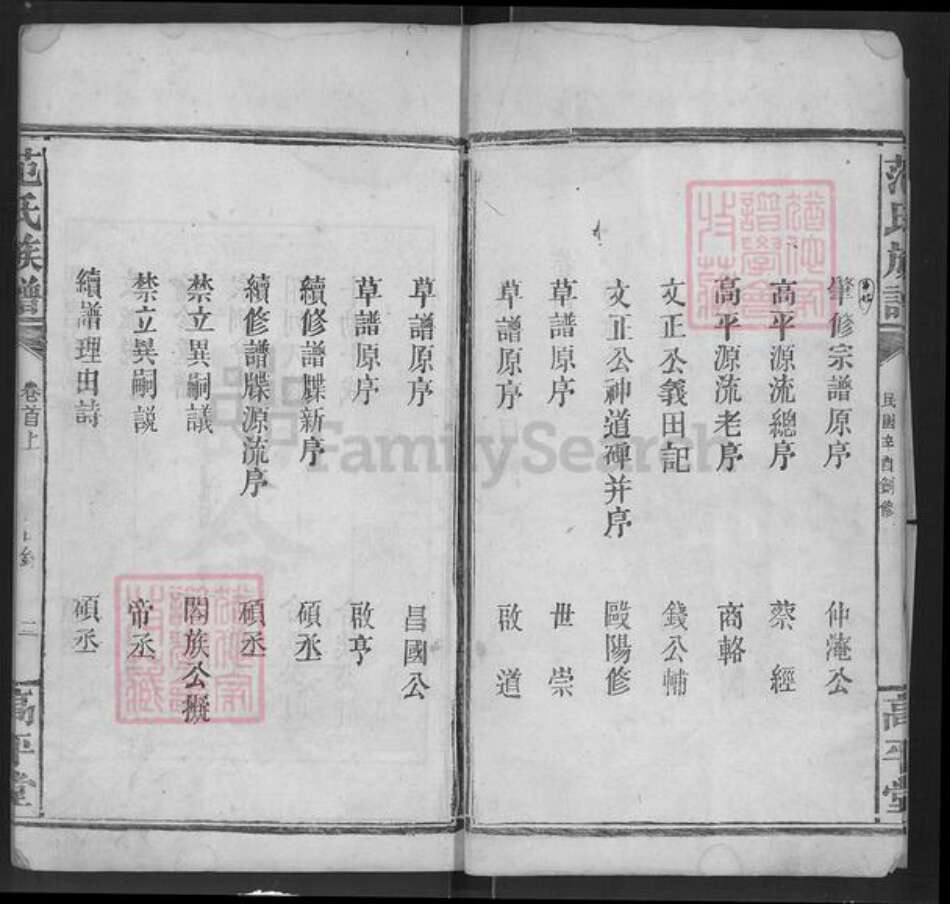 范氏族譜
民國辛酉創修
高平堂
肇修宗譜原序 仲淹公
高平源流總序 蔡經
高平源流老序 商輅
文正公義田記 錢公輔
文正公神道碑并序 歐陽修
草譜原序 世崇
草譜原序 啟道
草譜原序 昌國公
草譜原序 啟亨
續修譜牒新序 碩丞
續修譜牒源流序 碩丞
禁立異嗣議 閤族公擬
禁立異嗣說 帝丞
續譜理由詩 碩丞
范氏族譜
卷首上
二
高平堂
FamilySearch